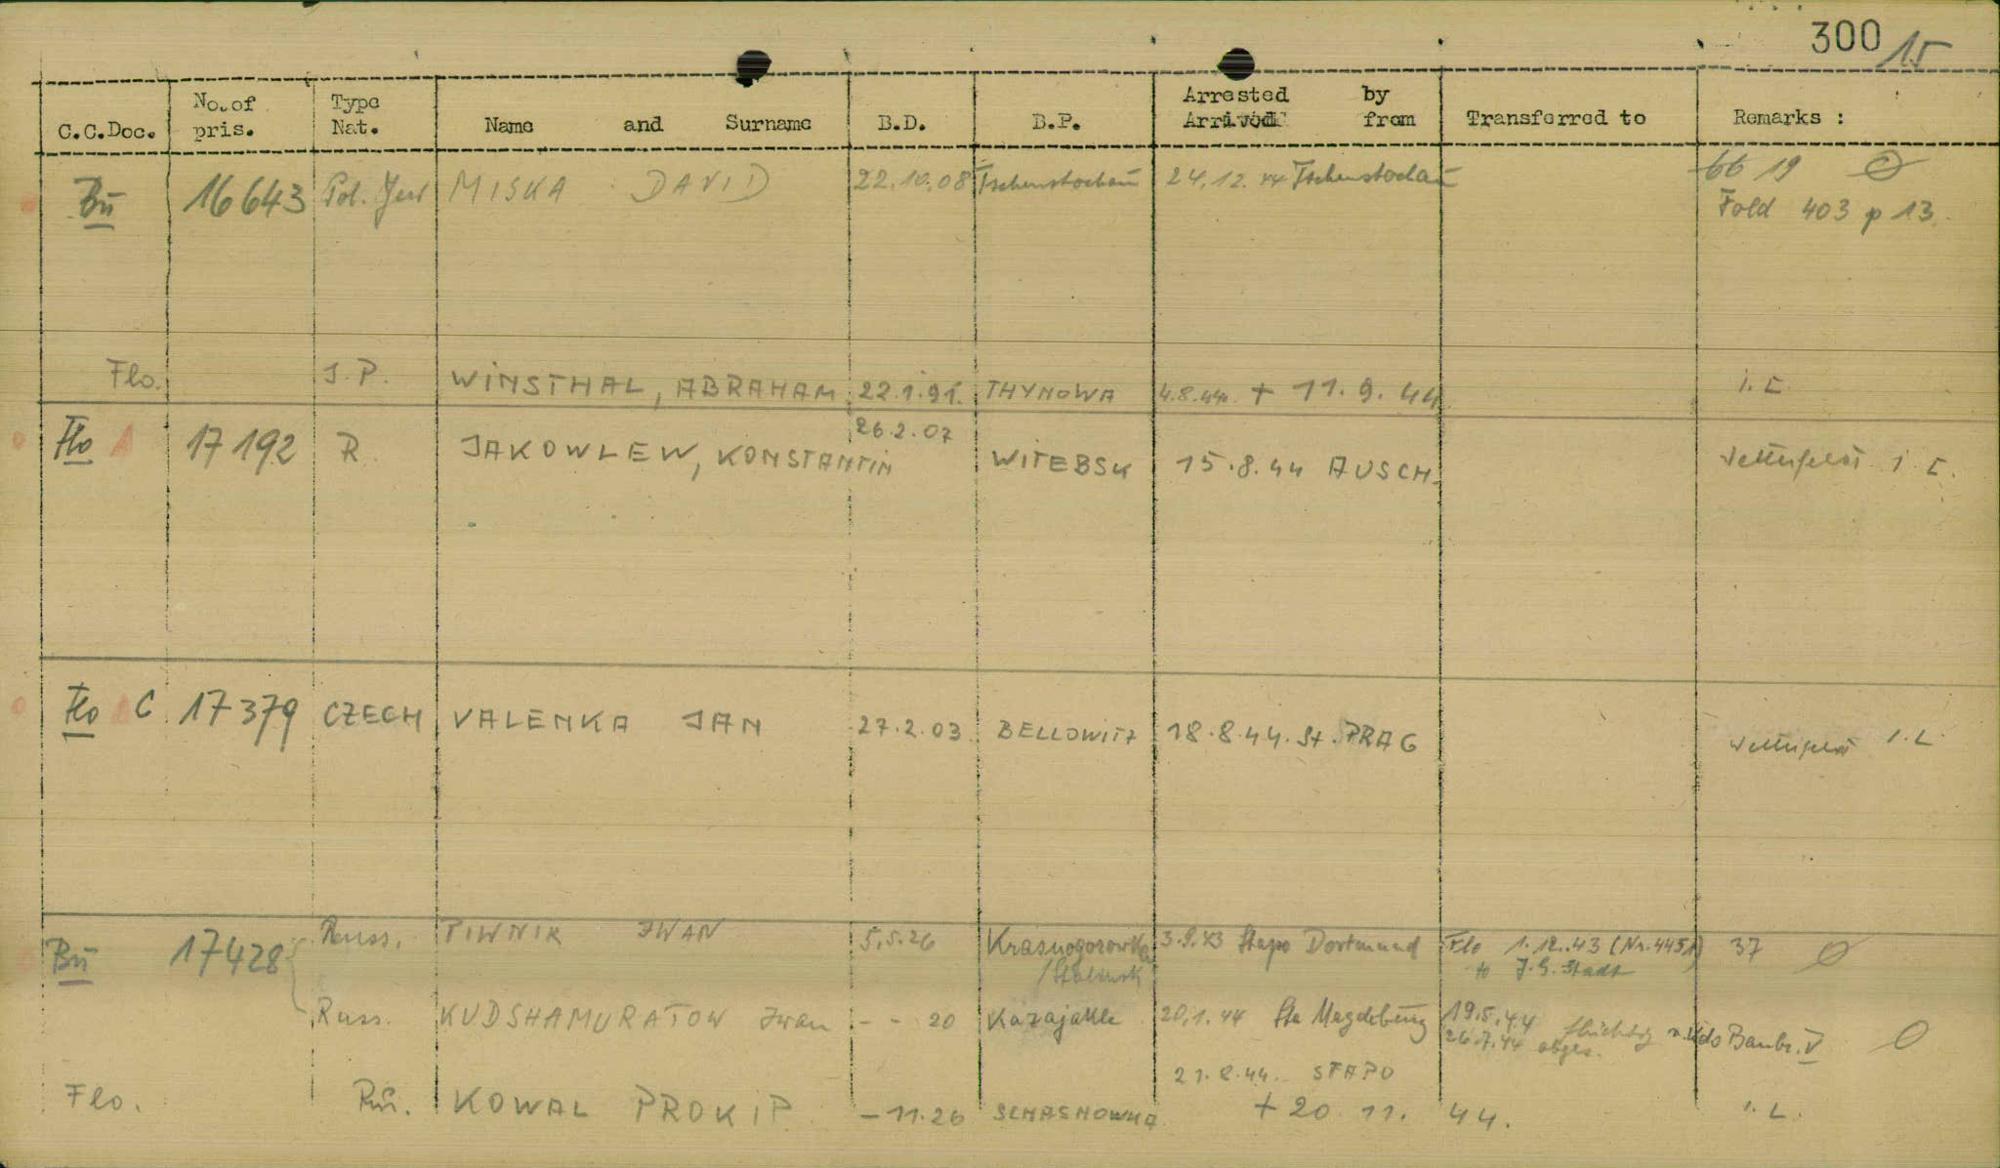 300 15
C.C.Doc. No. of pris. Type Nat. Name and Surname B.D. B.P. Arrested by Arrived from Transferred to Remarks :
Bu 16643 Pol. Jew MISKA DAVID 22.10.08 Tschenstochau 24.12.44 Tschenstochau 66 19
Fold 403 p 13.
Flo. J.P. WINSTHAL, ABRAHAM 22.1.91. THYNOWA 4.8.44. + 11.9.44 i.L.
Flo A 17192 R. JAKOWLEW, KONSTANTIN 26.2.07 WITEBSK 15.8.44 AUSCH. i.L.
Flo A C 17379 CZECH VALENKA JAN 27.2.03 BELLOWITZ 18.8.44. St. PRAG i.L.
Bu 17428 Russ. PIWNIK IWAN 5.5.26 Krasnogorowka 3.9.43 Stapo Dortmund Flo 1.12.43 (Nr. 4451) 37
/Stalinsk to J.G. Stadt
Russ. KUDSHAMURATOW Iwan - - 20 Kazajakle 20.1.44 Sta Magdeburg 19.5.44 flüchtig Baubr. V
26.7.44
21.8.44. STAPO
Flo. Ru. KOWAL PROKIP - 11.26 SCHASNOWKA + 20. 11. 44. i.L.